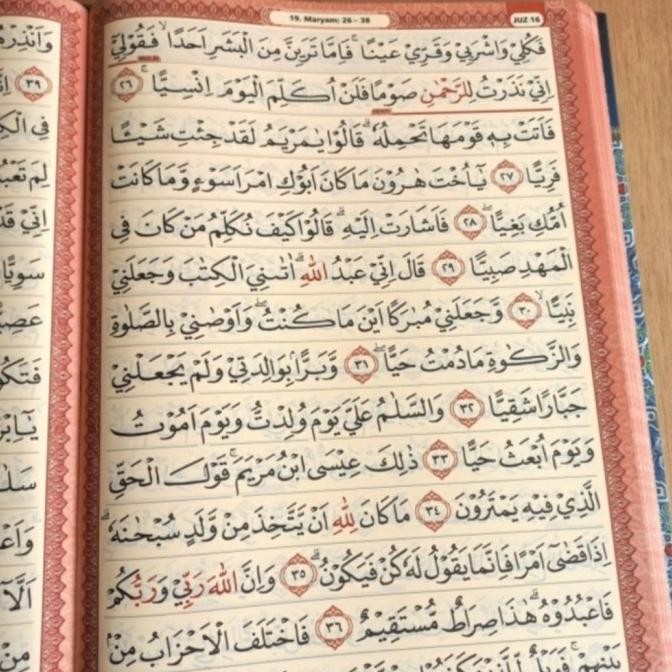 19. Maryam: 26 – 38
JUZ 16
فَكُلِيْ وَاشْرَبِيْ وَقَرِّيْ عَيْنًا ۚ فَاِمَّا تَرَيِنَّ مِنَ الْبَشَرِ اَحَدًا ۙ فَقُوْلِيْٓ
اِنِّيْ نَذَرْتُ لِلرَّحْمٰنِ صَوْمًا فَلَنْ اُكَلِّمَ الْيَوْمَ اِنْسِيًّا ۚ ٢٦
فَاَتَتْ بِهٖ قَوْمَهَا تَحْمِلُهٗ ۗ قَالُوْا يٰمَرْيَمُ لَقَدْ جِئْتِ شَيْـًٔا
فَرِيًّا ٢٧ يٰٓاُخْتَ هٰرُوْنَ مَا كَانَ اَبُوْكِ امْرَاَ سَوْءٍ وَّمَا كَانَتْ
اُمُّكِ بَغِيًّا ۖ ٢٨ فَاَشَارَتْ اِلَيْهِ ۗ قَالُوْا كَيْفَ نُكَلِّمُ مَنْ كَانَ فِى
الْمَهْدِ صَبِيًّا ٢٩ قَالَ اِنِّيْ عَبْدُ اللّٰهِ ۗ اٰتٰىنِيَ الْكِتٰبَ وَجَعَلَنِيْ
نَبِيًّا ۙ ٣٠ وَّجَعَلَنِيْ مُبٰرَكًا اَيْنَ مَا كُنْتُ ۖ وَاَوْصٰنِيْ بِالصَّلٰوةِ
وَالزَّكٰوةِ مَا دُمْتُ حَيًّا ۖ ٣١ وَّبَرًّا بِوَالِدَتِيْ وَلَمْ يَجْعَلْنِيْ
جَبَّارًا شَقِيًّا ٣٢ وَالسَّلٰمُ عَلَيَّ يَوْمَ وُلِدْتُّ وَيَوْمَ اَمُوْتُ
وَيَوْمَ اُبْعَثُ حَيًّا ٣٣ ذٰلِكَ عِيْسَى ابْنُ مَرْيَمَ ۚ قَوْلَ الْحَقِّ
الَّذِيْ فِيْهِ يَمْتَرُوْنَ ٣٤ مَا كَانَ لِلّٰهِ اَنْ يَّتَّخِذَ مِنْ وَّلَدٍ سُبْحٰنَهٗ ۗ
اِذَا قَضٰٓى اَمْرًا فَاِنَّمَا يَقُوْلُ لَهٗ كُنْ فَيَكُوْنُ ۗ ٣٥ وَاِنَّ اللّٰهَ رَبِّيْ وَرَبُّكُمْ
فَاعْبُدُوْهُ ۗ هٰذَا صِرَاطٌ مُّسْتَقِيْمٌ ٣٦ فَاخْتَلَفَ الْاَحْزَابُ مِنْۢ